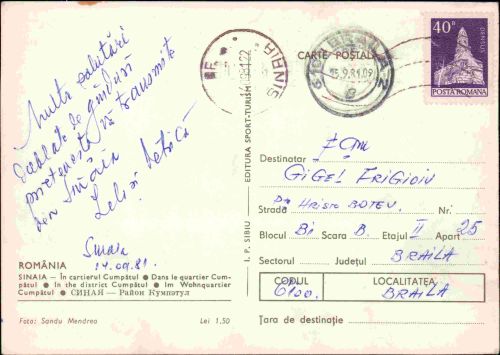 Multe salutări
dublate de gînduri
prietenești vă transmite
din Sinaia
Leli și Petrică
Sinaia
14.09.81.
ROMÂNIA
SINAIA — În cartierul Cumpătul ● Dans le quartier Cum-
pătul ● In the district Cumpătul ● Im Wohnquartier
Cumpătul ● СИНАЯ — Район Кумпэтул
Foto: Sandu Mendrea
Lei 1,50
I. P. SIBIU
EDITURA SPORT-TURISM
SINAIA
CARTE POSTALĂ
15.9.81.09
40 B
DENSUȘ
POSTA ROMANA
Destinatar Fam
GIGEL FRIGIOIU
Strada Hristo BOTEV. Nr.
Blocul B1 Scara B. Etajul II Apart 25
Sectorul Județul BRAILA
CODUL LOCALITATEA
6100. BRAILA
Țara de destinație